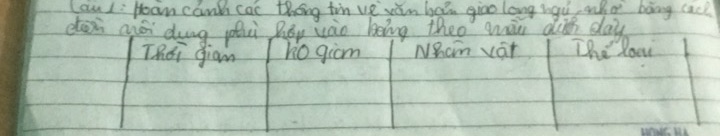 Câu 1: Hoàn cảnh các thông tin về văn bản giao long ngụ nhơ bằng cách
điền nội dung phù hợp vào bảng theo mẫu dưới đây
Thời gian Hồ giam Nhân vật Thể loại
HONG HA